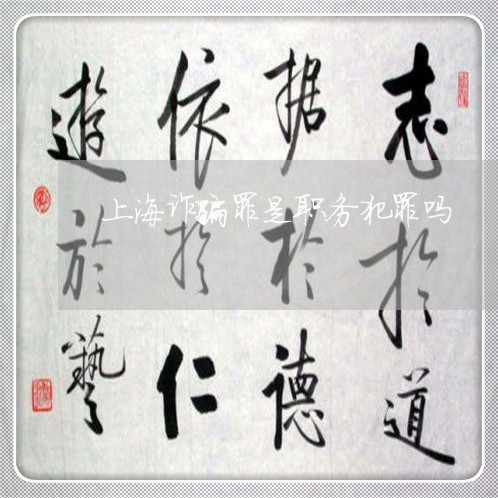 志於道
据於德
依於仁
遊於藝
上海诈骗罪是职务犯罪吗